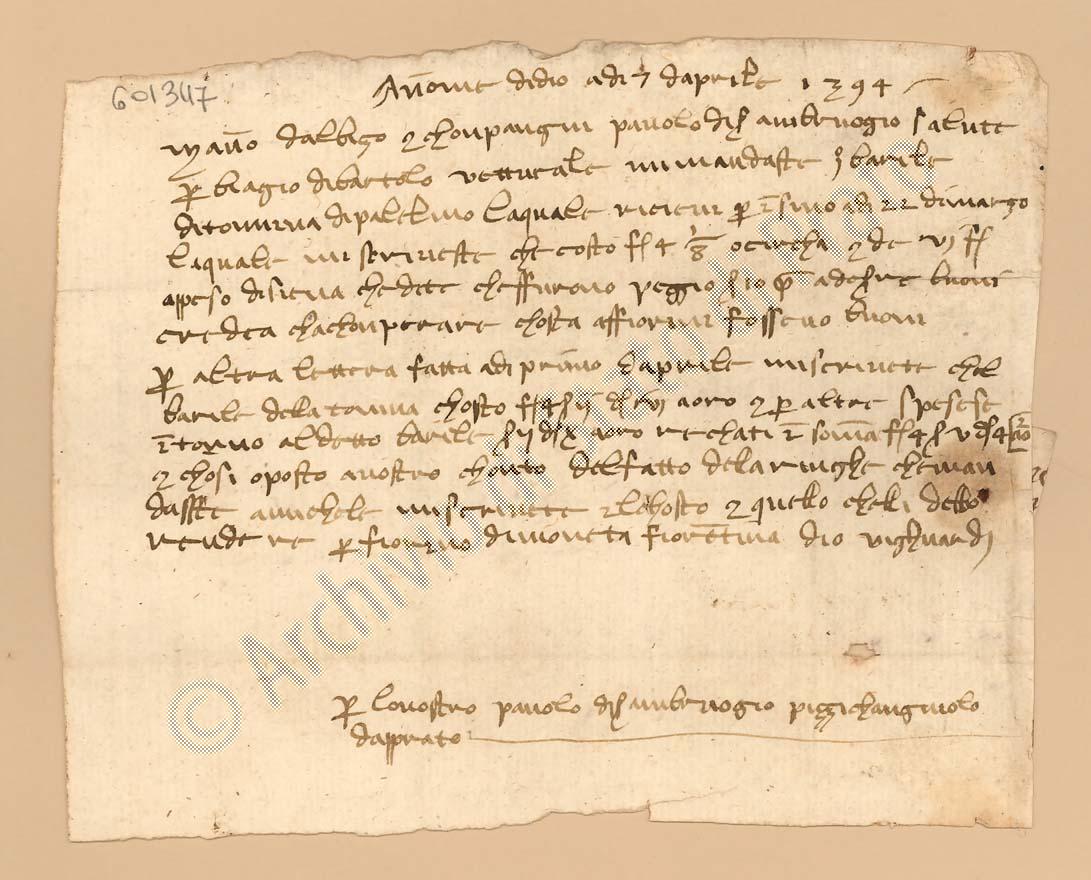 601347
Al nome di dio adi 7 daprile 1394
Manno dalbizo e chonpangni pauolo di s ambruogio salute
per biagio dibartolo vetturale mi mandaste j barile
di tonnina di palermo laquale riceui per insino adi 22 dimarzo
laquale mi scriueste che costo f 4 1/8 o circha e de vj f
appeso di siena che dite cheffurono peggio s 10 adessere buoni
credea chachonperare chosta affiorini fosseno buoni
per altra lettera fatta adi primo daprile mi scriuete chel
barile dela tonnina chosto f 4 s ij d vj aoro e per altre spese
intorno al detto barile s ij d x aoro rechati in somma f 4 s v d 4
e chosi o posto a uostro chonto del fatto dela ringhe che man
daste a michele mi scriuete il chosto e quello che li debbo
rendere per fiorino di moneta fiorentina dio vighuardi
per lo uostro pauolo di s ambruogio pizzichangnuolo
dapprato
© Archivio di Stato di Prato